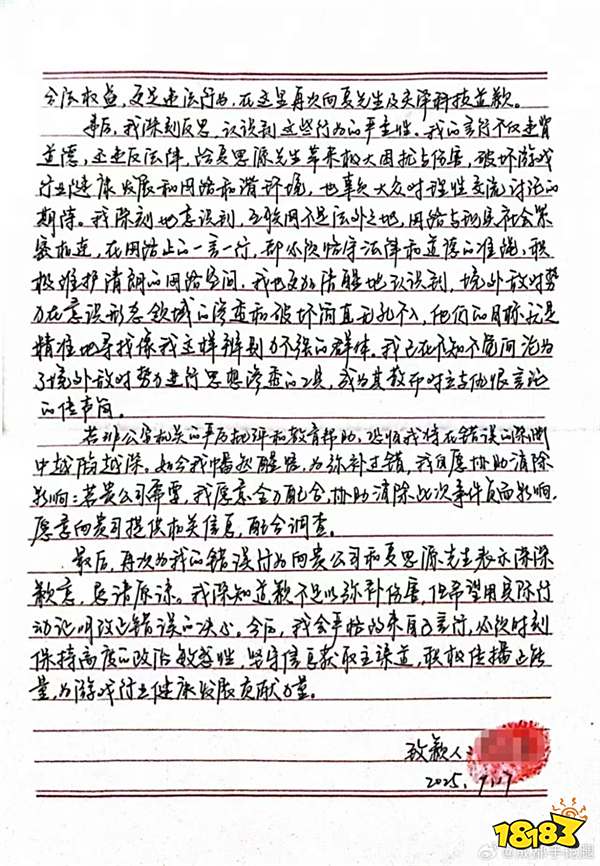 合法权益，更是违法行为，在这里再次向夏先生及灵泽科技道歉。
事后，我深刻反思，认识到这些行为的严重性。我的言行不仅违背
道德，还违反法律，给夏思源先生带来极大困扰与伤害，破坏游戏
行业健康发展和网络和谐环境，也辜负大众对理性交流讨论的
期待。我深刻地意识到，互联网不是法外之地，网络与现实社会紧
密相连，在网络上的一言一行，都必须恪守法律和道德的准绳，积
极维护清朗的网络空间。我也更加清醒地认识到，境外敌对势
力在意识形态领域的渗透和破坏简直无孔不入，他们的目标就是
精准地寻找像我这样辨别力不强的群体。我已在不知不觉间沦为
了境外敌对势力进行思想渗透的工具，成为其散布对立与仇恨言论
的传声筒。
若非公安机关的严厉批评和教育帮助，恐怕我将在错误的深渊
中越陷越深。如今我幡然醒悟，为弥补过错，我自愿协助消除
影响：若贵公司需要，我愿意全力配合，协助消除此次事件负面影响，
愿意向贵司提供相关信息，配合调查。
最后，再次为我的错误行为向贵公司和夏思源先生表示深深
歉意，恳请原谅。我深知道歉不足以弥补伤害，但希望用实际行
动证明改正错误的决心。今后，我会严格约束自己言行，必须时刻
保持高度的政治敏感性，坚守信息获取主渠道，积极传播正能
量，为游戏行业健康发展贡献力量。
致歉人：
2025.9.17
18183